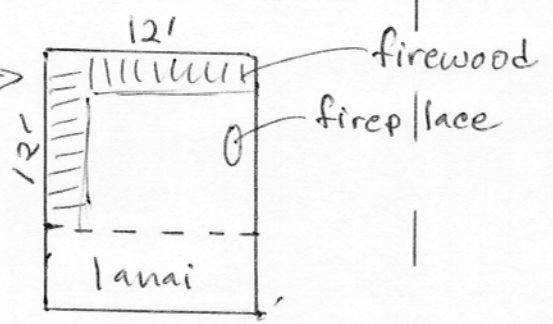 12'
firewood
fireplace
12'
lanai